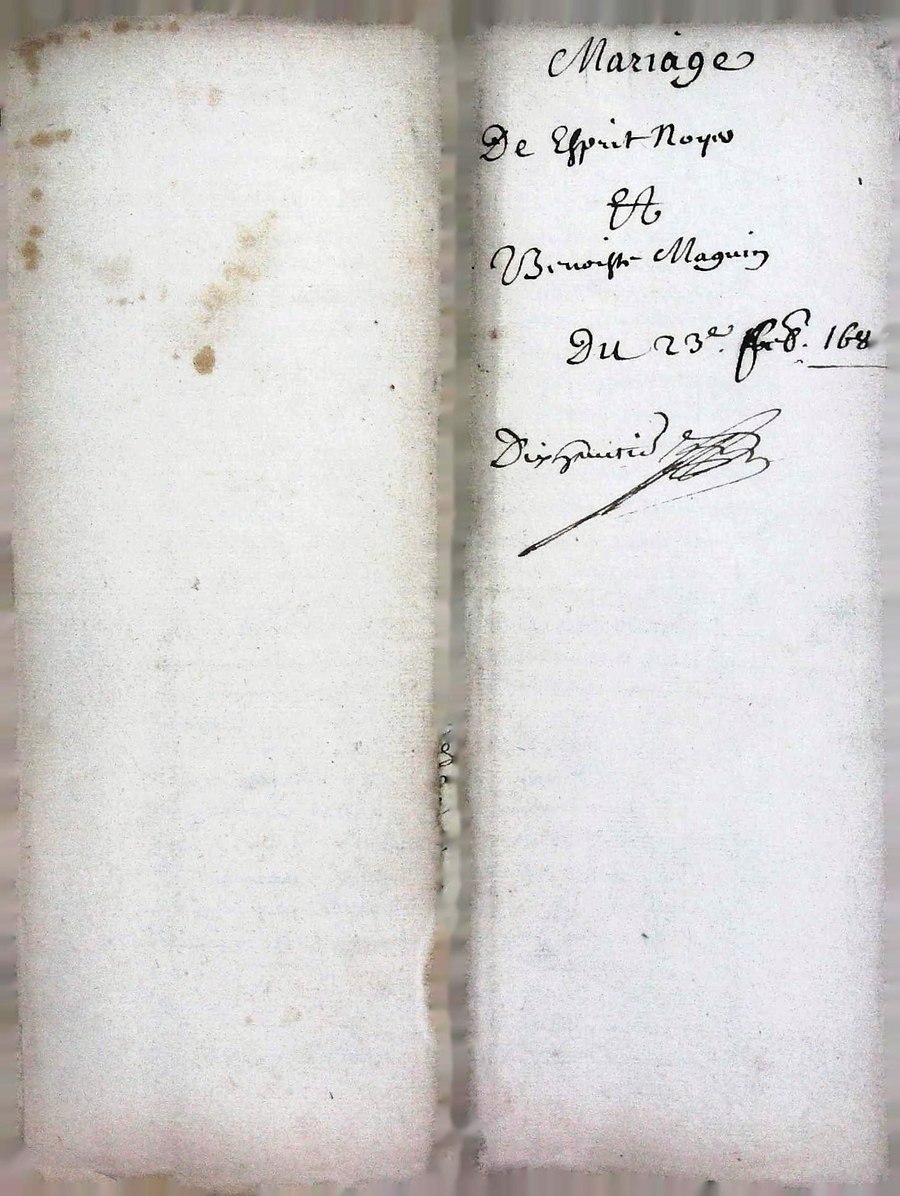 Mariage
De Esprit Noyer
Et
Benoiste Maguin
Du 23e. feb. 168
Dixhuitie